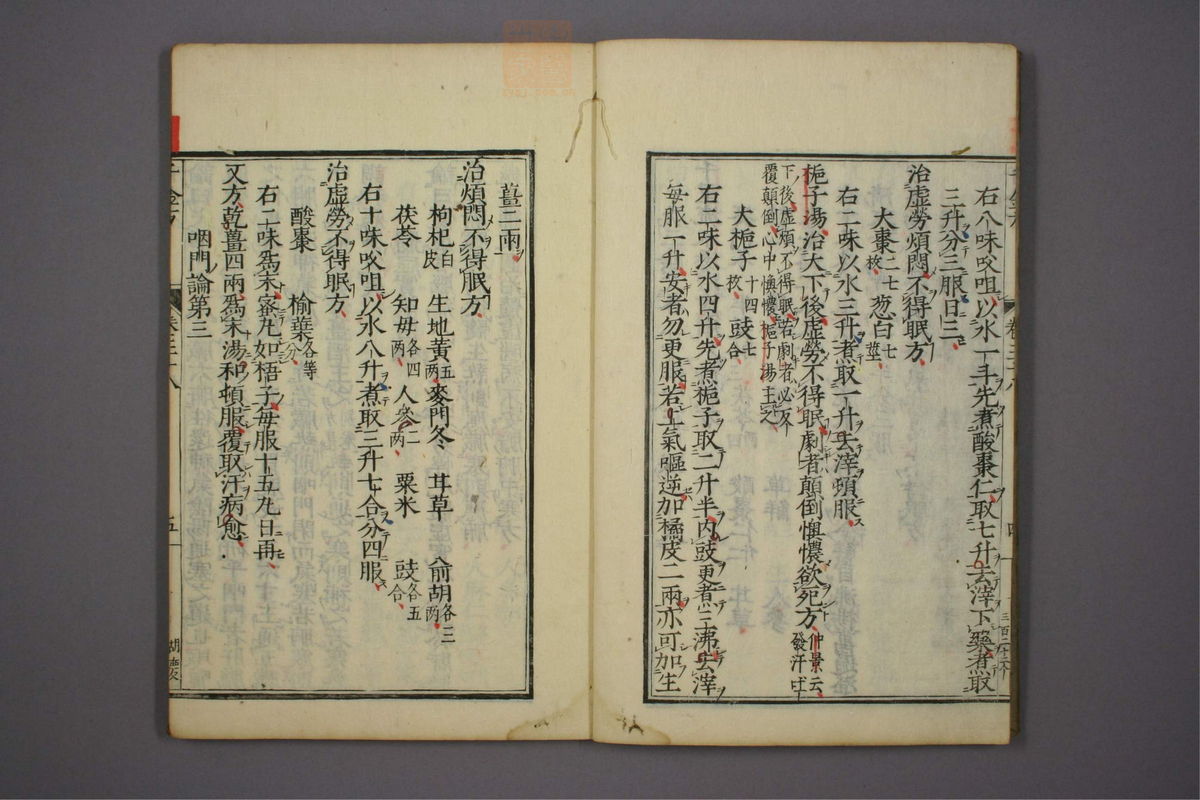 右八味㕮咀以水一斗先煮酸棗仁取七升去滓下藥煮取
三升分三服日三
治虛勞煩悶不得眠方
大棗二七枚 葱白七莖
右二味以水三升煮取一升去滓頓服
梔子湯治大下後虛勞不得眠劇者顛倒懊憹欲死方仲景云發汗吐
下後虛煩不得眠若劇者必反覆顛倒心中懊憹梔子湯主之
大梔子十四枚 豉七合
右二味以水四升先煮梔子取二升半內豉更煮三沸去滓
每服一升安者勿更服若上氣嘔逆加橘皮二兩亦可加生
薑二兩
治煩悶不得眠方
枸杞白皮 生地黃五兩 麥門冬 甘草 前胡各三兩
茯苓 知母各四兩 人參二兩 粟米 豉各五合
右十味㕮咀以水八升煮取三升七合分四服
治虛勞不得眠方
酸棗 榆葉各等分
右二味爲末蜜丸如梧子每服十五丸日再
又方乾薑四兩爲末湯和頓服覆取汗病愈
咽門論第三
千金方
五